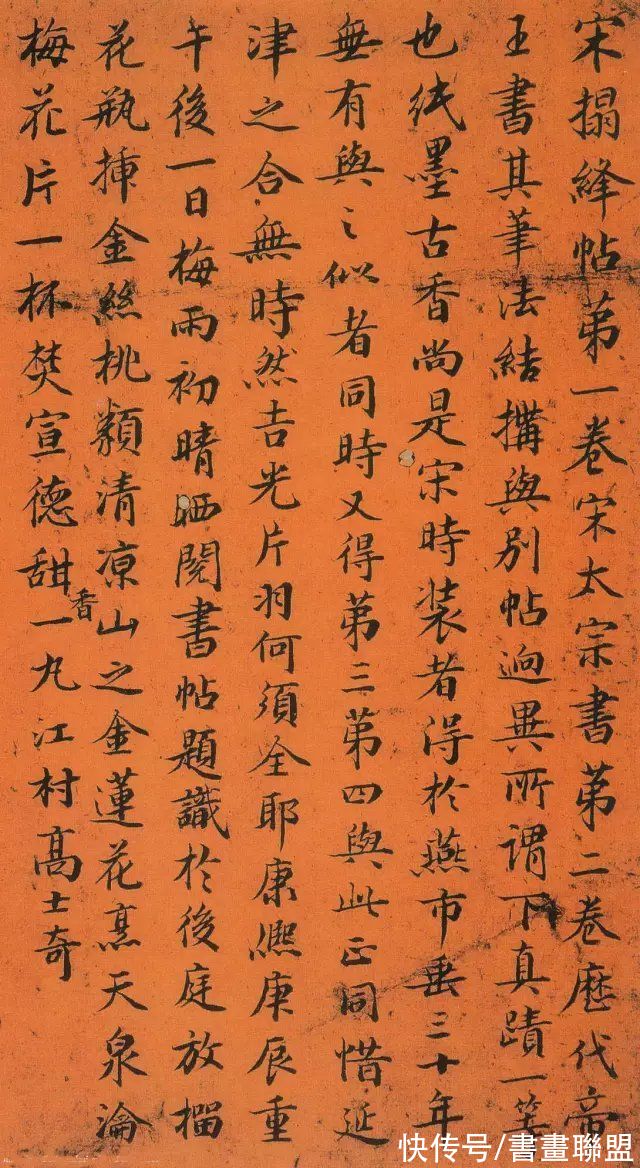 宋搨絳帖第一卷宋太宗書第二卷歷代帝
王書其筆法結搆與別帖迥異所謂下真蹟一等
也紙墨古香尚是宋時装者得於燕市垂三十年
無有與之似者同時又得第三第四與此正同惜延
津之合無時然吉光片羽何須全耶康熙庚辰重
午後一日梅雨初晴晒閱書帖題識於後庭放榴
花瓶揷金絲桃類清凉山之金蓮花烹天泉瀹
梅花片一杯焚宣德甜香一丸江村高士奇
快传号/書畫聯盟